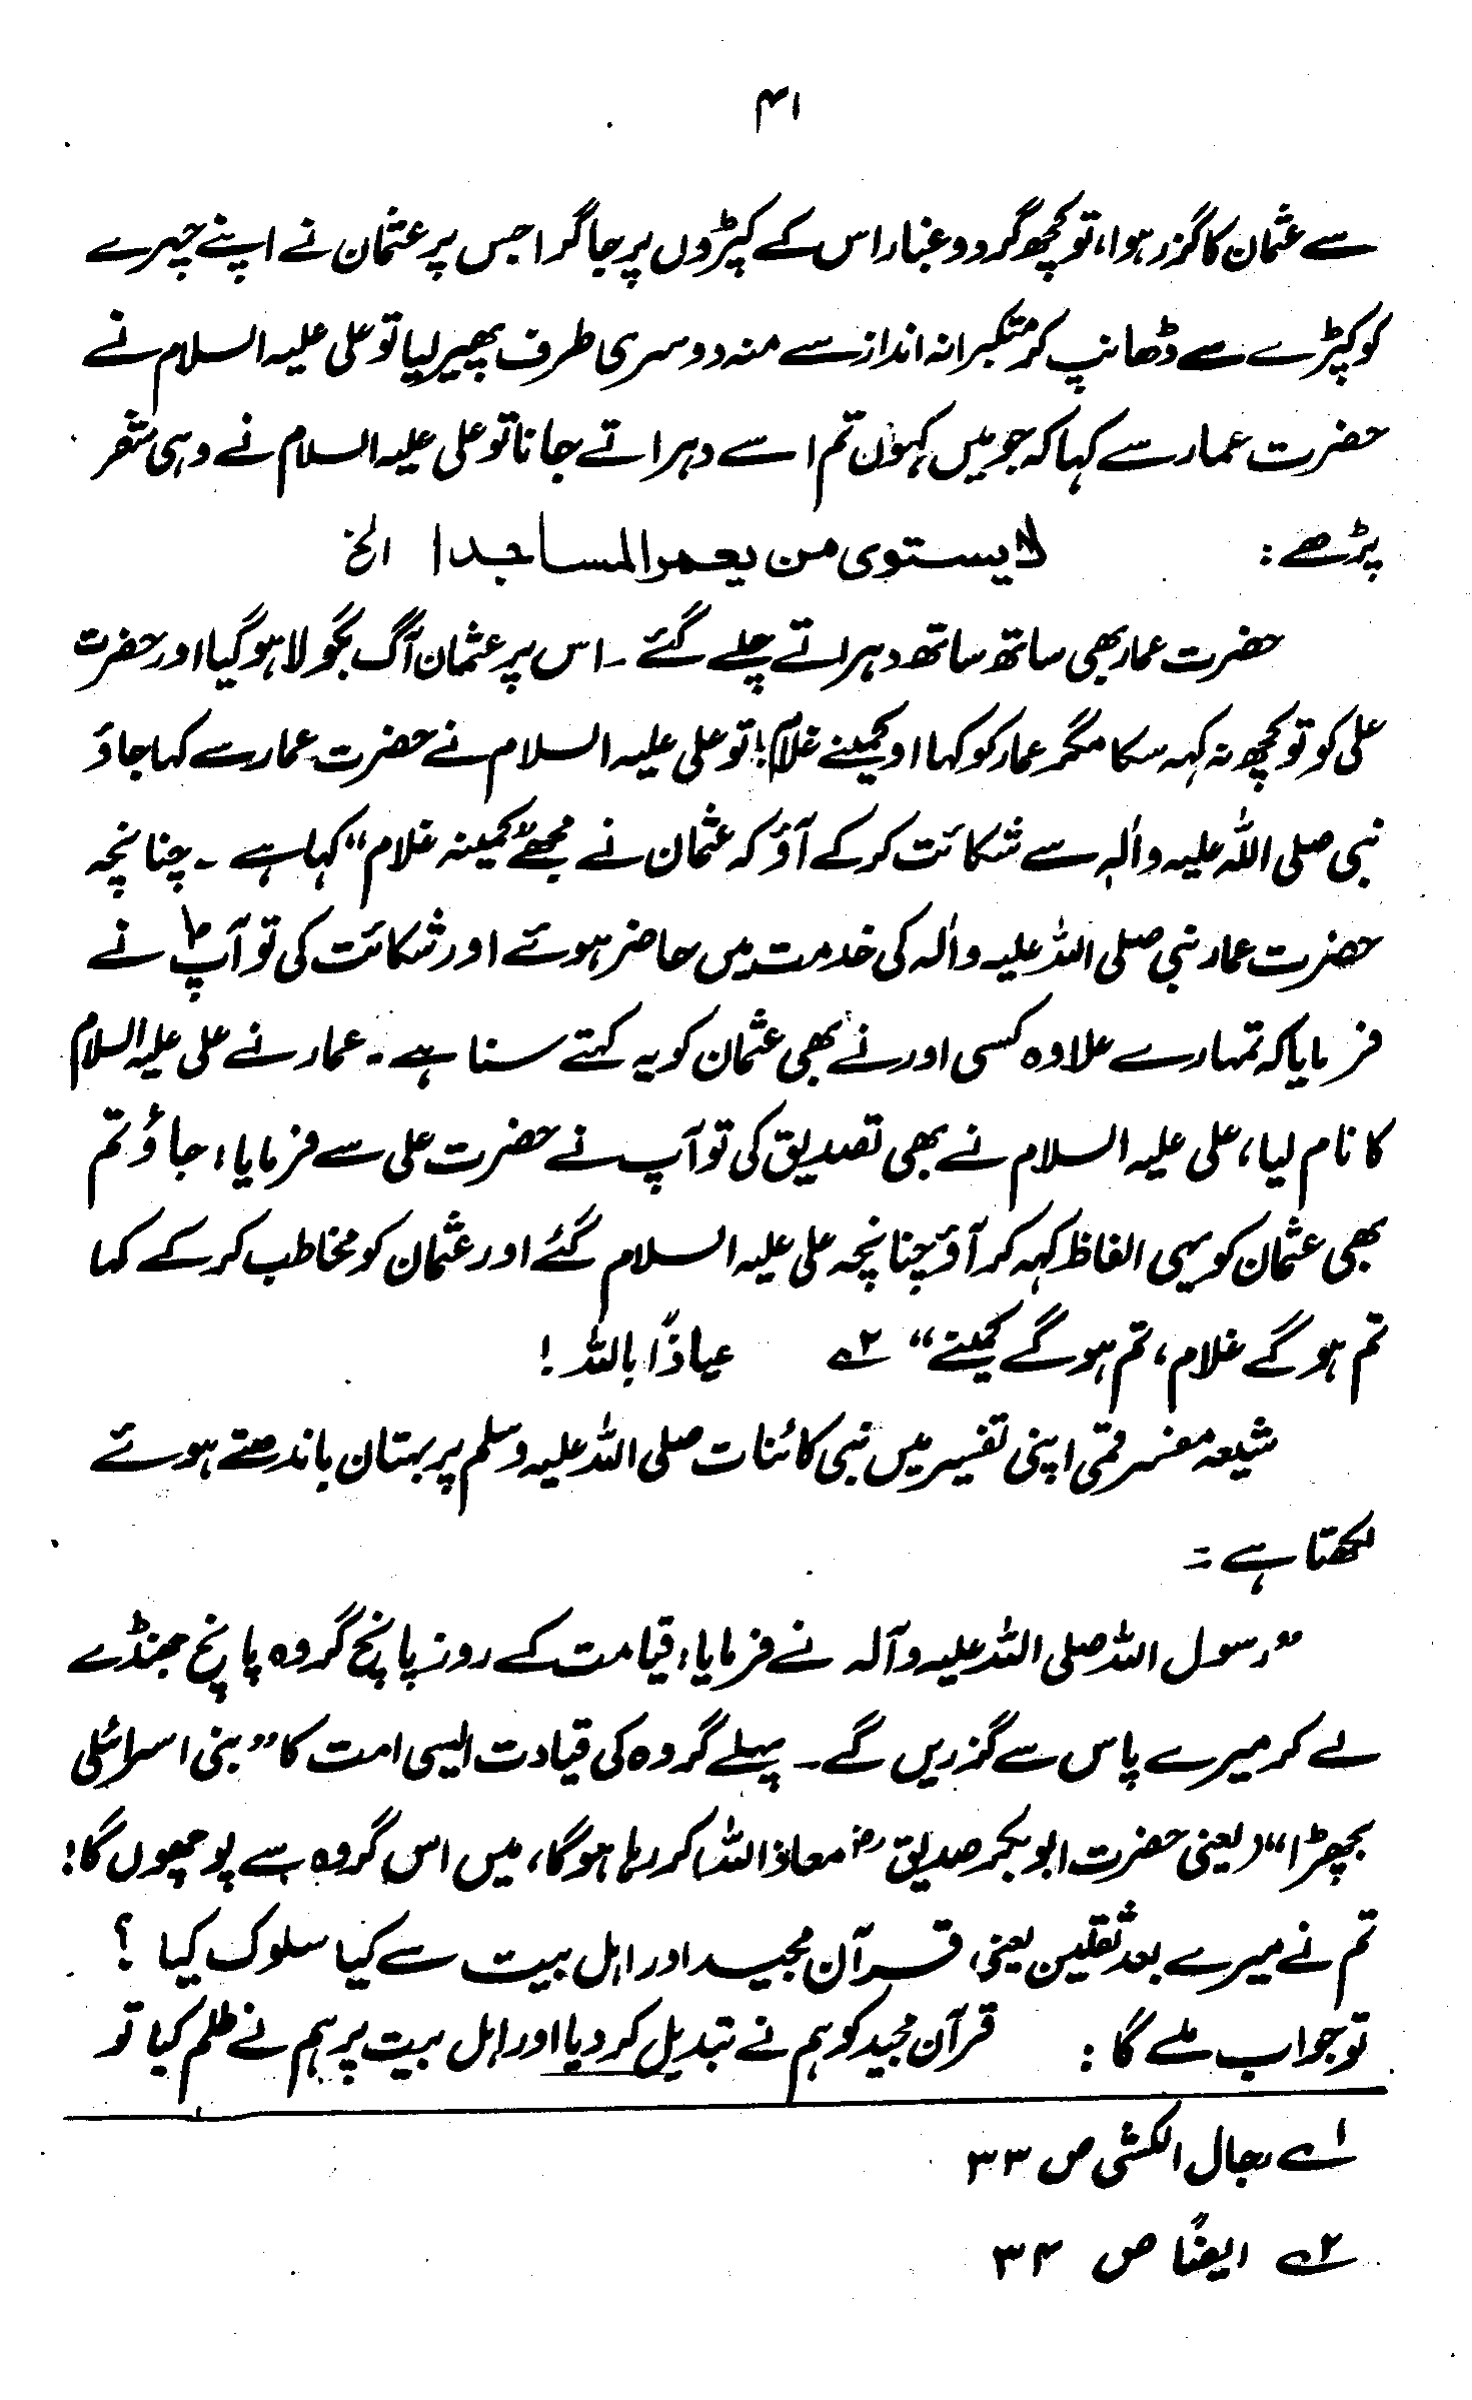 ۴۱
سے عثمان کا گزر ہوا، تو کچھ گرد و غبار اس کے کپڑوں پر جا گرا جس پر عثمان نے اپنے چہرے
کو کپڑے سے ڈھانپ کر متکبرانہ انداز سے منہ دوسری طرف پھیر لیا تو علی علیہ السلام نے
حضرت عمار سے کہا کہ جو میں کہوں تم اسے دہراتے جانا تو علی علیہ السلام نے وہی شعر
پڑھے : لا یستوی من یعمر المساجدا الخ
حضرت عمار بھی ساتھ ساتھ دہراتے چلے گئے ۔ اس پر عثمان آگ بگولا ہو گیا اور حضرت
علی کو تو کچھ نہ کہہ سکا مگر عمار کو کہا او کمینے غلام! تو علی علیہ السلام نے حضرت عمار سے کہا جاؤ
نبی صلی اللہ علیہ والہٖ سے شکائت کر کے آؤ کہ عثمان نے مجھے "کمینہ غلام" کہا ہے ۔ چنانچہ
حضرت عمار نبی صلی اللہ علیہ والہ کی خدمت میں حاضر ہوئے اور شکائت کی تو آپ ؐ نے
فرمایا کہ تمہارے علاوہ کسی اور نے بھی عثمان کو یہ کہتے سنا ہے ۔ عمار نے علی علیہ السلام
کا نام لیا، علی علیہ السلام نے بھی تصدیق کی تو آپ نے حضرت علی سے فرمایا: جاؤ تم
بھی عثمان کو یہی الفاظ کہہ کر آؤ چنانچہ علی علیہ السلام گئے اور عثمان کو مخاطب کر کے کہا
تم ہو گے غلام، تم ہو گے کمینے" ۲؎ عیاذًا باللہ !
شیعہ مفسر قمی اپنی تفسیر میں نبی کائنات صلی اللہ علیہ وسلم پر بہتان باندھتے ہوئے
لکھتا ہے :-
"رسول اللہ صلی اللہ علیہ وآلہ نے فرمایا: قیامت کے روز پانچ گروہ پانچ جھنڈے
لے کر میرے پاس سے گزریں گے ۔ پہلے گروہ کی قیادت ایسی امت کا "بنی اسرائلی
بچھڑا" (یعنی حضرت ابو بکر صدیق رضؓ معاذ اللہ) کر رہا ہو گا، میں اس گروہ سے پوچھوں گا:
تم نے میرے بعد ثقلین یعنی قرآن مجید اور اہل بیت سے کیا سلوک کیا ؟
تو جواب ملے گا : قرآن مجید کو ہم نے تبدیل کر دیا اور اہل بیت پر ہم نے ظلم کیا تو
۱؎ رجال الکشی ص ۳۳
۲؎ ایضًا ص ۳۴